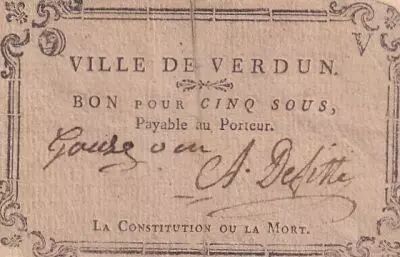 V
VILLE DE VERDUN.
BON POUR CINQ SOUS,
Payable au Porteur.
A. Delitte
LA CONSTITUTION OU LA MORT.